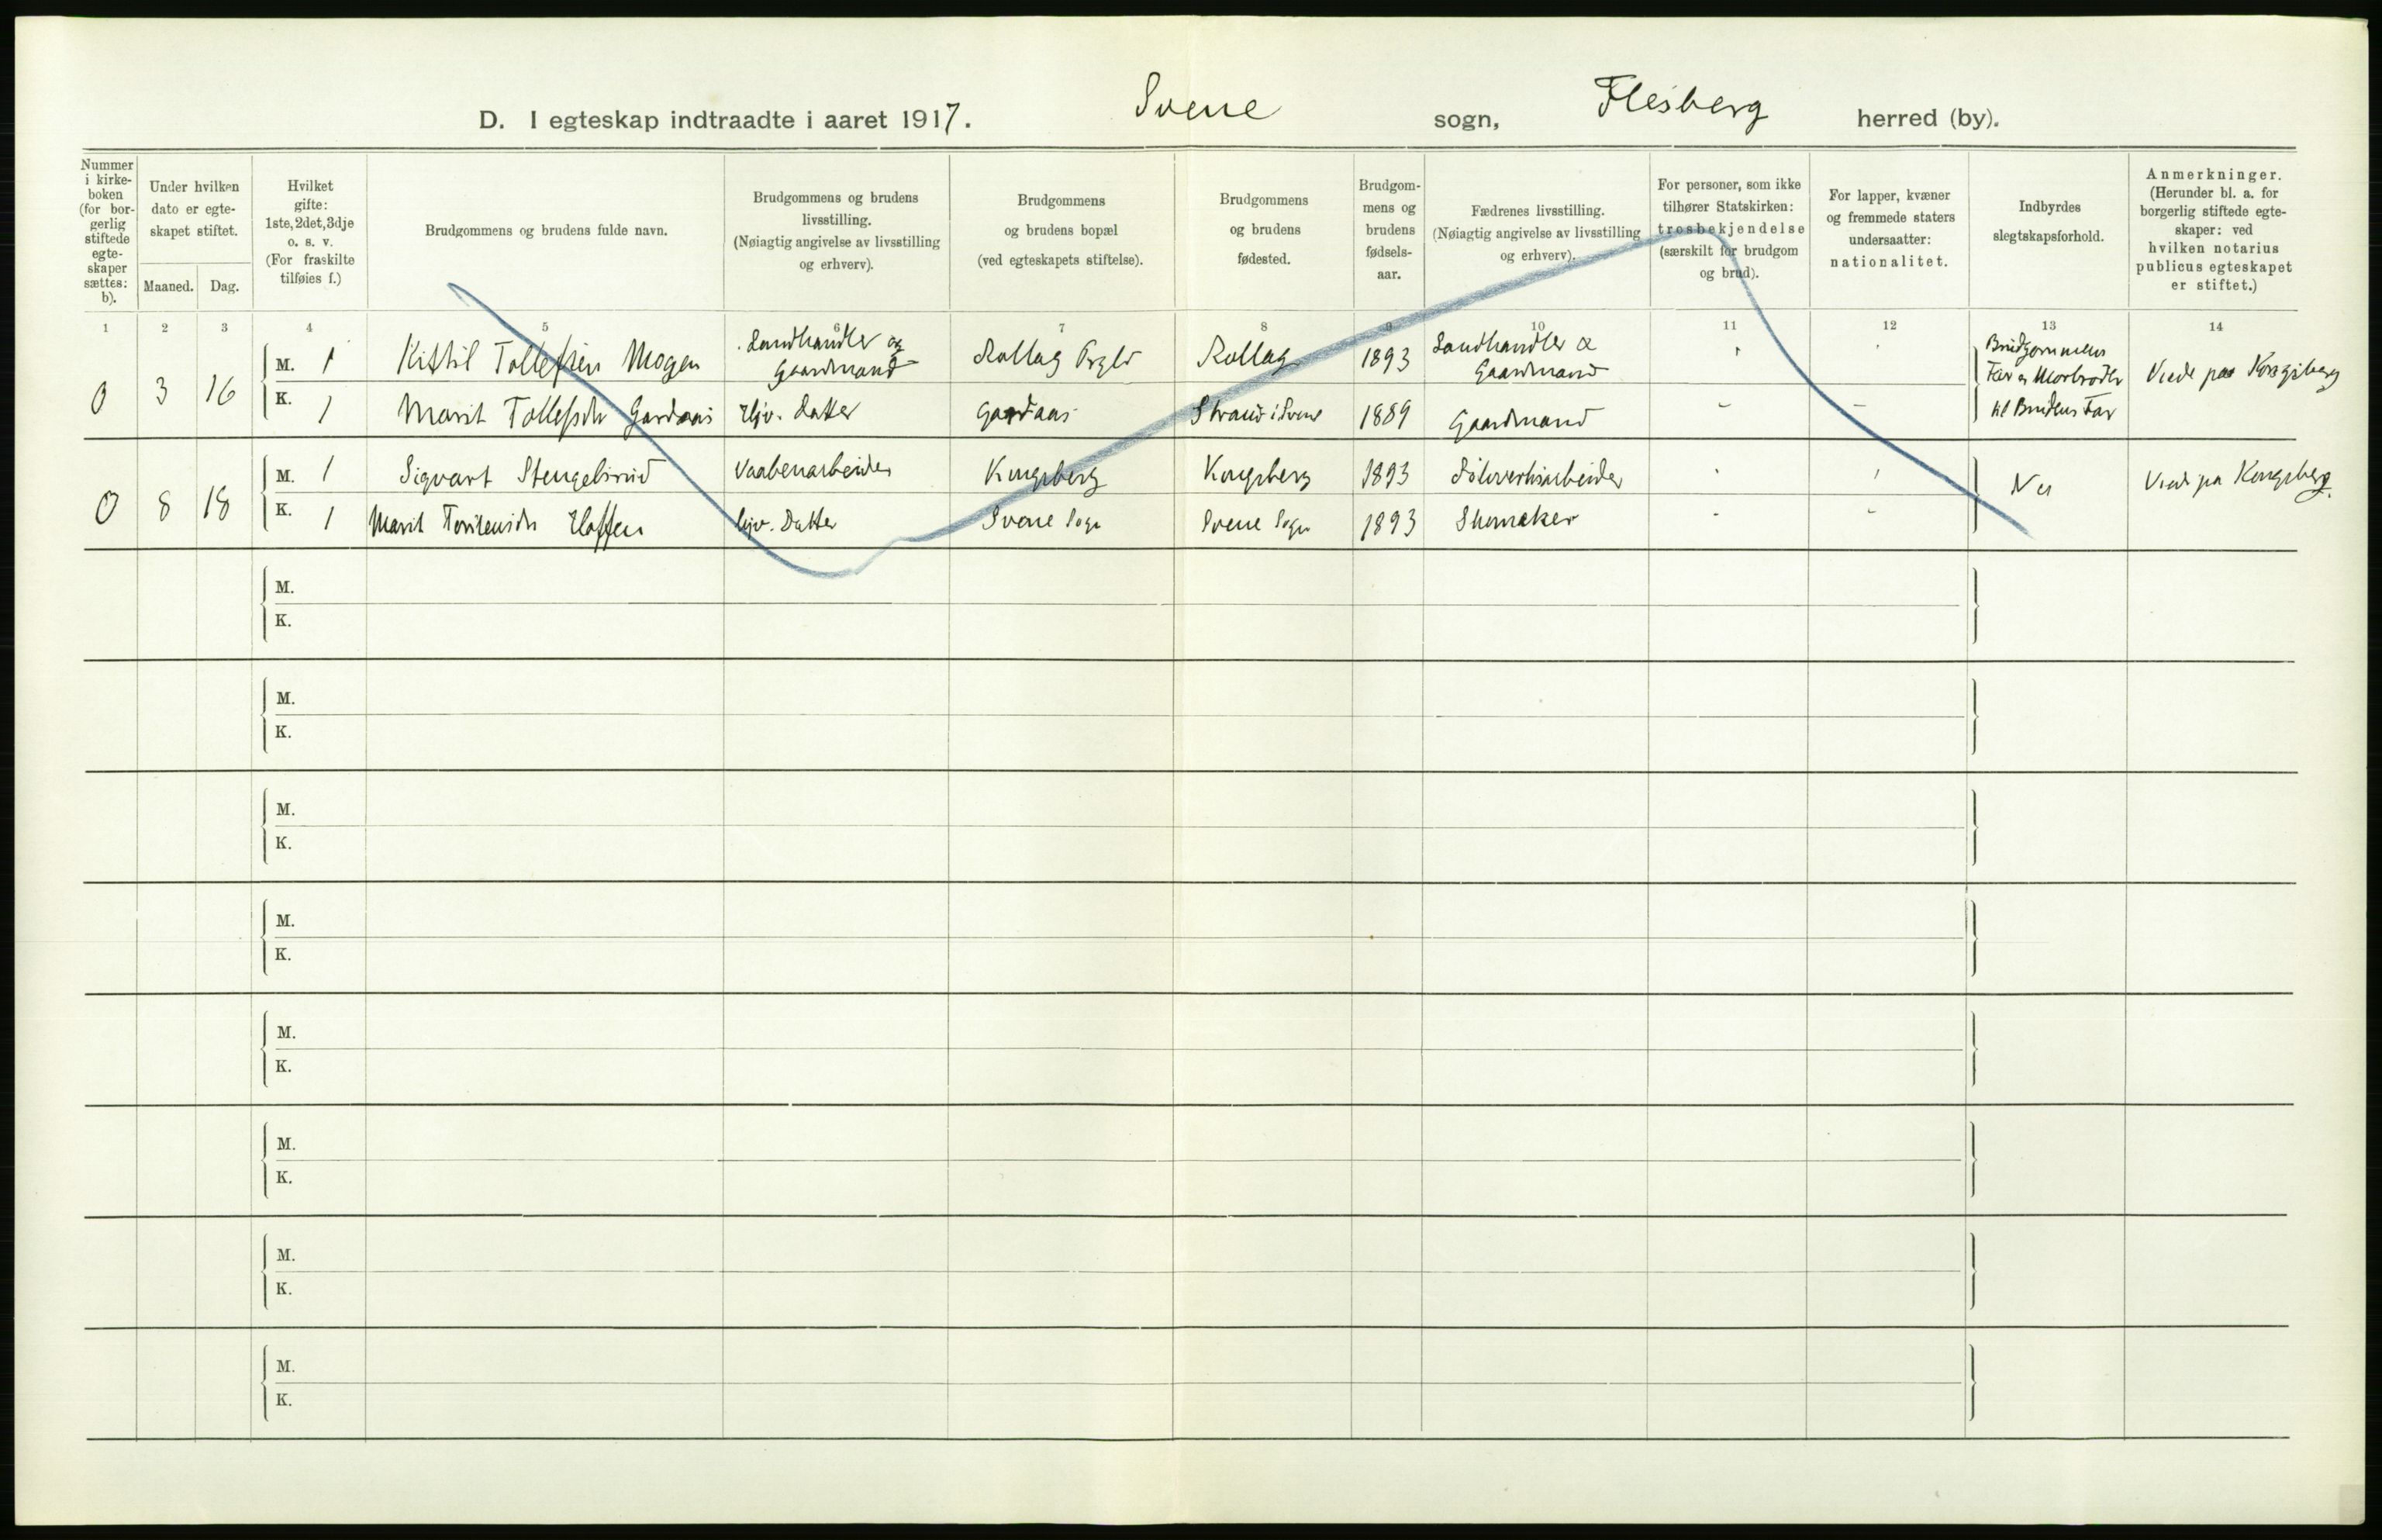 D. I egteskap indtraadte i aaret 1917. Svene sogn, Flesberg herred (by).
Nummer i kirke-boken (for bor-gerlig stiftede egte-skaper sættes: b).
Under hvilken dato er egte-skapet stiftet.
Maaned. Dag.
Hvilket gifte: 1ste, 2det, 3dje o. s. v. (For fraskilte tilføies f.)
Brudgommens og brudens fulde navn.
Brudgommens og brudens livsstilling. (Nøiagtig angivelse av livsstilling og erhverv).
Brudgommens og brudens bopæl (ved egteskapets stiftelse).
Brudgommens og brudens fødested.
Brudgom-mens og brudens fødsels-aar.
Fædrenes livsstilling. (Nøiagtig angivelse av livsstilling og erhverv).
For personer, som ikke tilhører Statskirken: trosbekjendelse (særskilt for brudgom og brud).
For lapper, kvæner og fremmede staters undersaatter: nationalitet.
Indbyrdes slegtskapsforhold.
Anmerkninger. (Herunder bl. a. for borgerlig stiftede egte-skaper: ved hvilken notarius publicus egteskapet er stiftet.)
1 2 3 4 5 6 7 8 9 10 11 12 13 14
0 3 16
M. 1 Kittil Tollefsen Mogen Landhandler og Gaardmand Rollag Prgld Rollag 1893 Landhandler & Gaardmand
K. 1 Marit Tollefsdr Gardaas Hjv. Datter Gardaas Strand i Svene 1889 Gaardmand - -
Brudgommens Far er Morbroder til Brudens Far
Viede paa Kongsberg
0 8 18
M. 1 Sigvart Stengelsrud Vaabenarbeider Kongsberg Kongsberg 1893 Sölververksarbeider
K. 1 Marit Torstensdr Hoffen Hjv. Datter Svene Sogn Svene Sogn 1893 Skomaker - -
Nei
Viede paa Kongsberg.
M.
K.
M.
K.
M.
K.
M.
K.
M.
K.
M.
K.
M.
K.
M.
K.